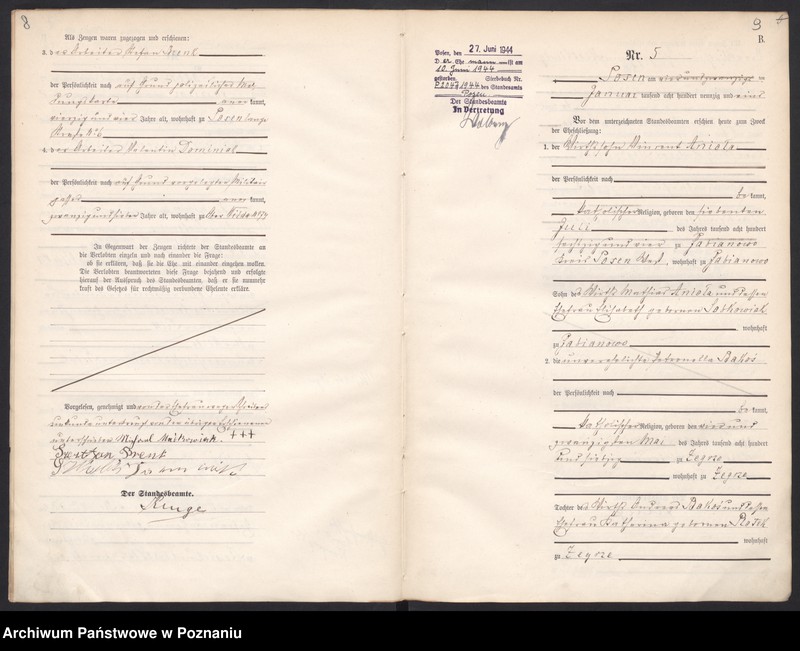 8
Als Zeugen waren zugezogen und erschienen:
3. der Arbeiter Stefan Szenk
der Persönlichkeit nach auf Grund polizeilicher Mel-
dungskarte kannt,
vierzig und vier Jahre alt, wohnhaft zu Posen lange
Straße № 6
4. der Arbeiter Valentin Dominiak
der Persönlichkeit nach auf Grund vorgelegter Militär
passes kannt,
zwanzig und sieben Jahre alt, wohnhaft zu Ober Wilda № 79
In Gegenwart der Zeugen richtete der Standesbeamte an
die Verlobten einzeln und nach einander die Frage:
ob sie erklären, daß sie die Ehe mit einander eingehen wollen.
Die Verlobten beantworteten diese Frage bejahend und erfolgte
hierauf der Ausspruch des Standesbeamten, daß er sie nunmehr
kraft des Gesetzes für rechtmäßig verbundene Eheleute erkläre.
Vorgelesen, genehmigt und von der Ehefrau wegen Schreibens
unkunde unterkreuzt von den übrigen Erschienenen
unterschrieben +++
Der Standesbeamte.
Kluge
9
B.
Posen, den 27. Juni 1944
D Ehe ist am
10. Juni 1944
gestorben. Sterbebuch Nr.
1944 des Standesamts
Posen
Der Standesbeamte
In Vertretung
Nr. 5
Posen am vier und zwanzigsten
Januar tausend acht hundert neunzig und eins
Vor dem unterzeichneten Standesbeamten erschien heute zum Zweck
der Eheschließung:
1. der Wirthssohn Vincent Aniola
der Persönlichkeit nach
be kannt,
katholischer Religion, geboren den siebenten
Juli des Jahres tausend acht hundert
sechszig und vier zu Fabianowo
Kreis Posen West, wohnhaft zu Fabianowo
Sohn des Wirths Mathias Aniola und dessen
Ehefrau Elisabeth geborenen Ratkowiak
wohnhaft
zu Fabianowo
2. die unverehelichte Petronella Bakoś
der Persönlichkeit nach
be kannt,
katholischer Religion, geboren den vier und
zwanzigsten Mai des Jahres tausend acht
hundert siebzig zu Zegrze
wohnhaft zu Zegrze
Tochter des Wirths Andreas Bakoś und dessen
Ehefrau Katharina geborenen
wohnhaft
zu Zegrze
Archiwum Państwowe w Poznaniu